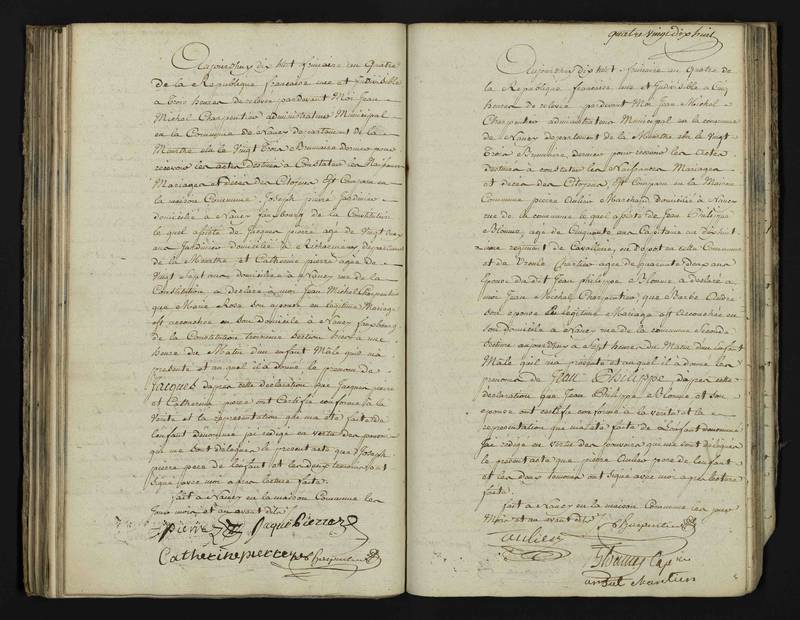 Aujourdhuy dix huit frimaire an Quatre
de la Republique française une et Indivisible
a Trois heures de relevée pardevant Moi Jean
Michel Charpentier administrateur Municipal
en la Commune de Nancy departement de la
Meurthe elu le Vingt Trois Brumaire dernier pour
recevoir les actes destinés a Constater les Naissances
Mariages et décès des Citoyens Est Comparu en
la maison Commune Joseph pierre Jardinier
domicilié a Nancy faubourg de la Constitution
lequel assisté de Jacques pierre agé de Vingt
ans Jardinier Domicilié a departement
de la Meurthe et Catherine pierre agée de
Vingt sept ans domiciliée a Nancy rue de la
Constitution a declaré a moi Jean Michel Charpentier
que Marie Rose son epouse en legitime Mariage
est accouchée en son domicile a Nancy faubourg
de la Constitution troisieme section hier a une
heure de Matin d'un enfant Mâle qu'il m'a
presenté et auquel il a donné le prenom de
Jacques d'apres cette declaration que Jacques pierre
et Catherine pierre ont Certifié conforme a la
Verité et la representation qui m'a été faite de
l'enfant denommé j'ai redigé en vertu des pouvoirs
qui me sont delegués le present acte que Joseph
pierre pere de l'enfant et les deux temoins ont
signé avec moi apres lecture faite
fait a Nancy en la maison Commune les
jour mois et an avant dits
pierre Jaque Pierre
Catherine pierre Charpentier
quatre vingt dix huit
Aujourdhuy dix huit frimaire an Quatre de
la Republique française, une et Indivisible a Cinq
heures de relevée pardevant Moi Jean Michel
Charpentier administrateur Municipal en la commune
de Nancy departement de la Meurthe elu le Vingt
Trois Brumaire, dernier pour recevoir les Actes
destinés a constater les Naissances Mariages
et décès des Citoyens Est Comparu en la Maison
Commune pierre Marchand domicilié a Nancy
rue de la commune lequel assisté de Jean Philippe
agé de Cinquante ans Capitaine au dixhuit
regiment de Cavalerie, en depot en cette Commune
et de agée de quarante deux ans
Epouse du dit Jean philippe a declaré a
moi Jean Michel Charpentier, que Barbe
son epouse en legitime Mariage est accouchée en
son domicile a Nancy rue de la commune seconde
section aujourdhuy a sept heures du Matin d'un enfant
Mâle qu'il m'a presenté et auquel il a donné les
prenoms de Jean Philippe d'apres cette
declaration que Jean Philippe et son
epouse ont certifié conforme a la verité et la
representation qui m'a été faite de l'enfant denommé
J'ai redigé en vertu des pouvoirs qui me sont delegués
le present acte que pierre pere de l'enfant
et les deux temoins ont signé avec moi apres lecture
faite.
fait a Nancy en la maison Commune les jour
Mois et an avant dits
Charpentier